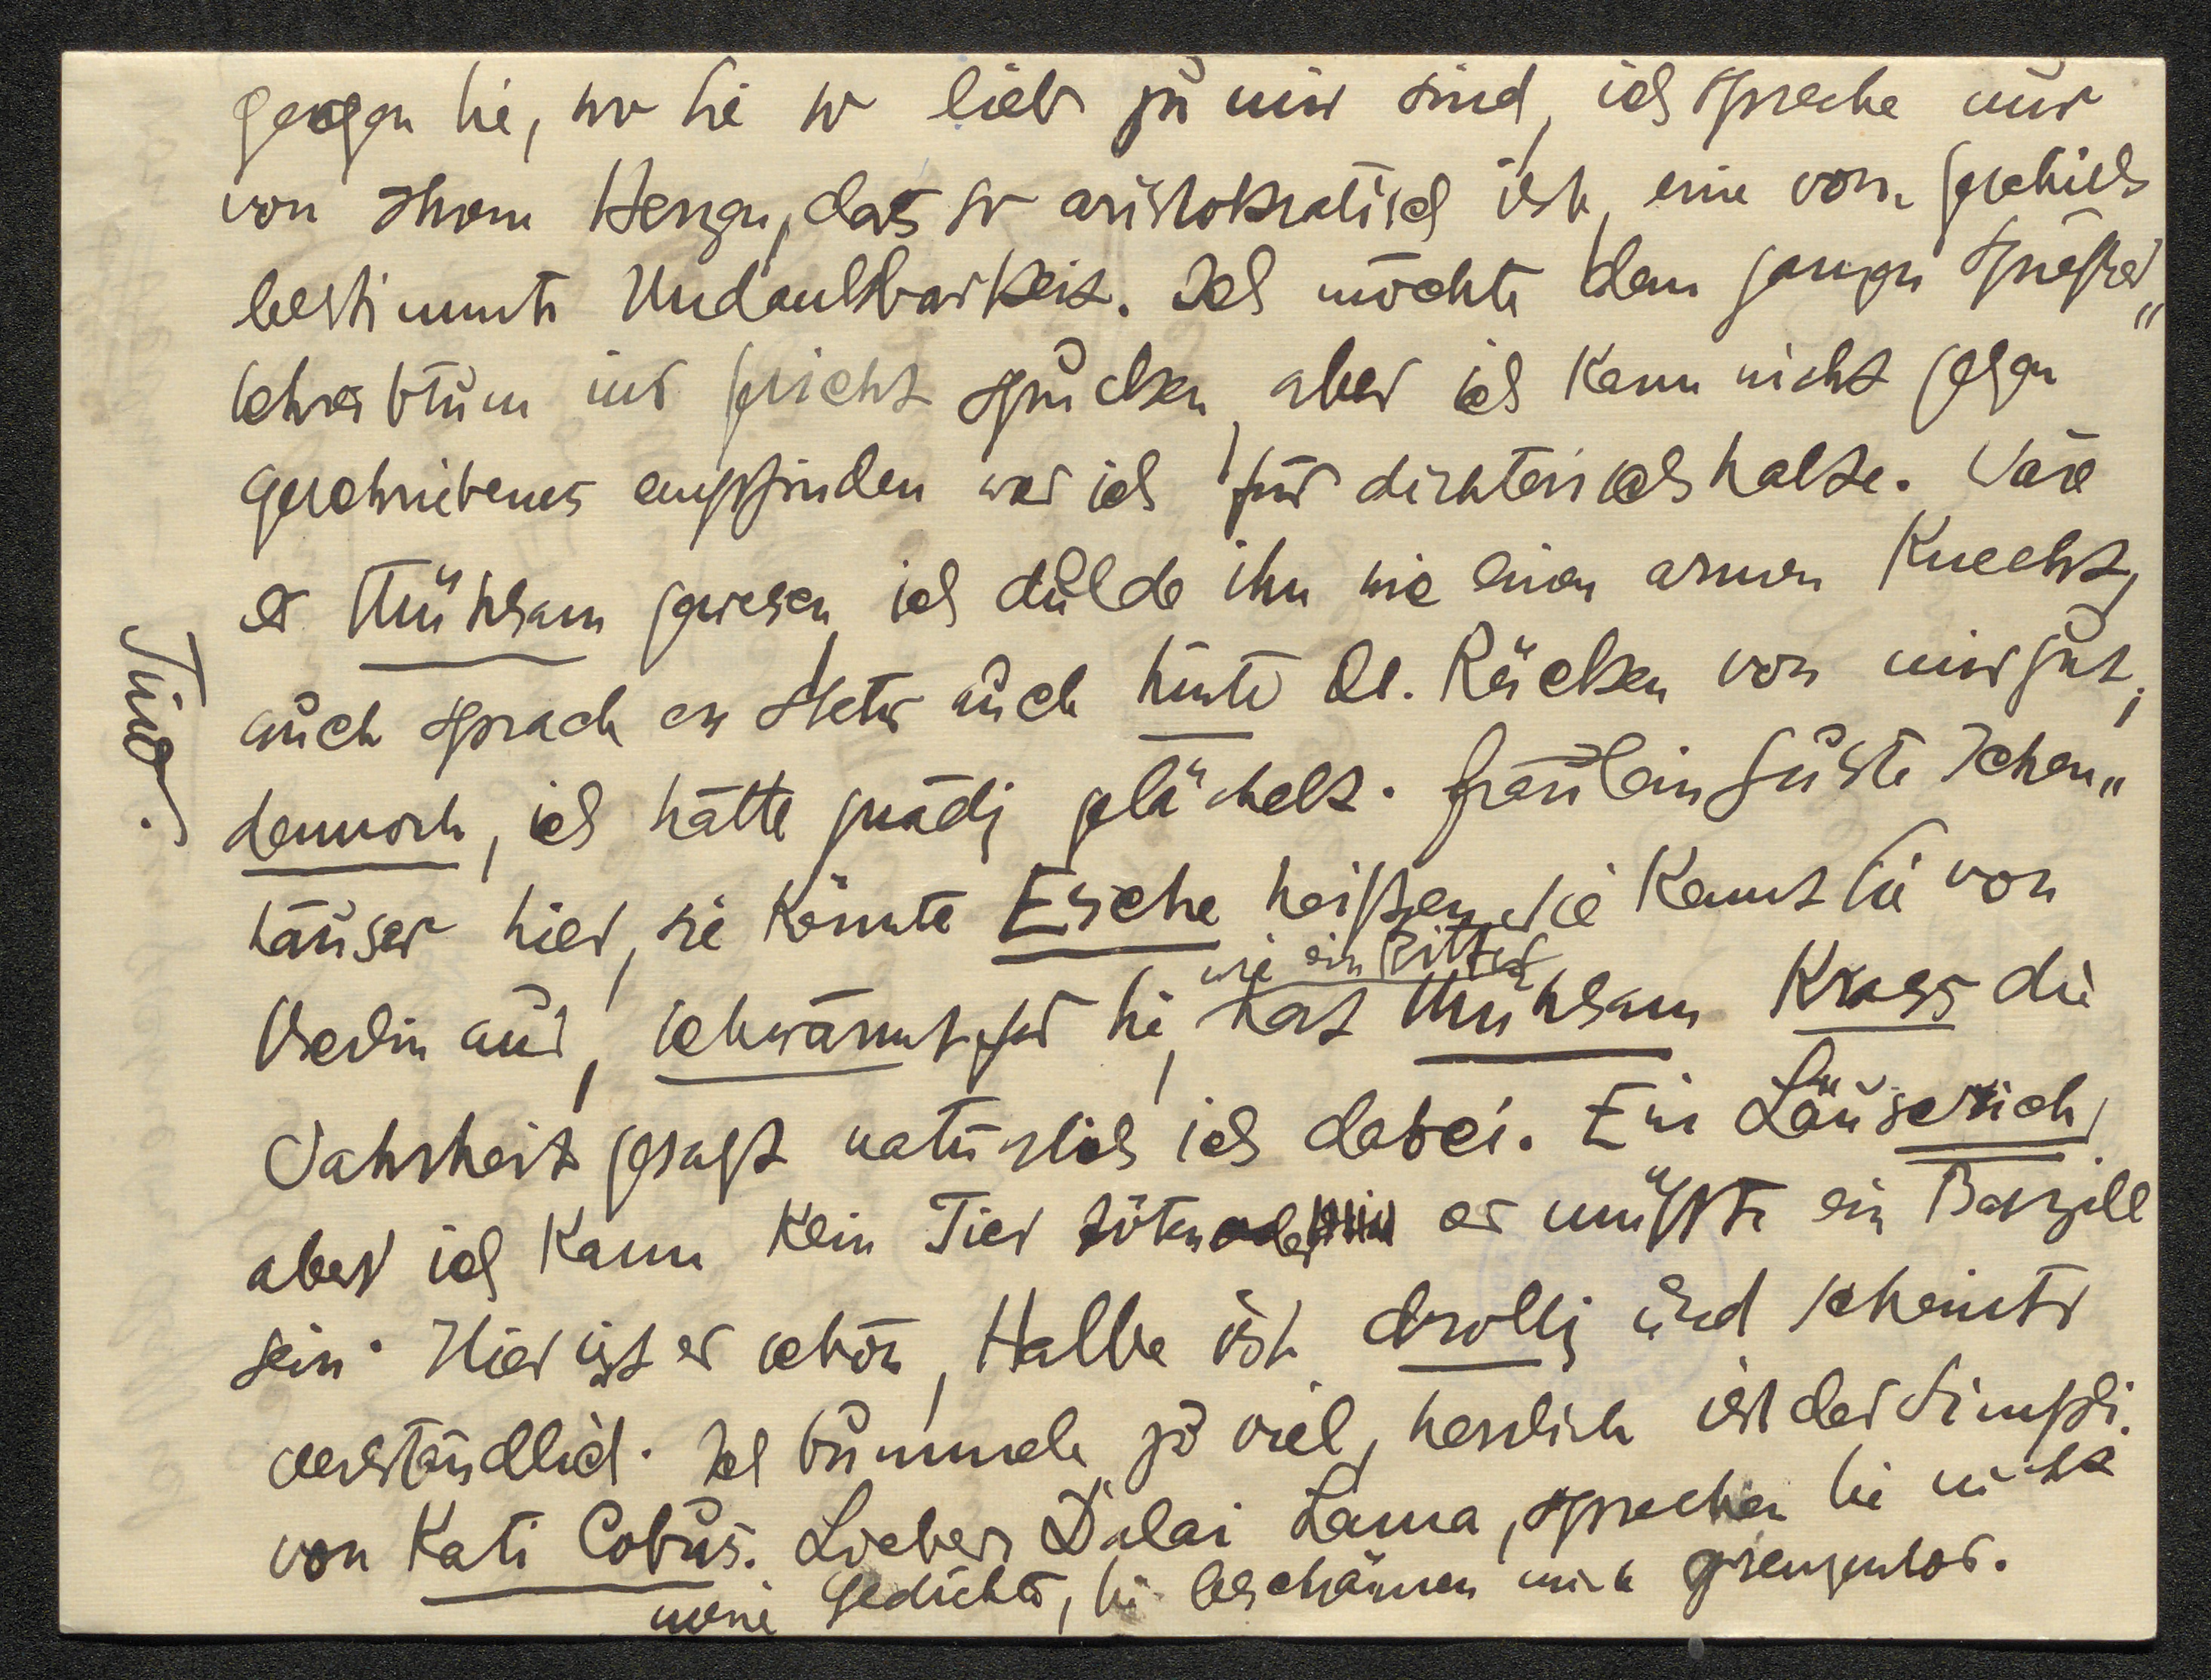 gegen Sie, wo Sie so lieb zu mir sind, ich spreche nur
von Ihrem Herzen, das so aristokratisch ist, eine vom Geschick
bestimmte Undankbarkeit. Ich möchte dem ganzen Spießer„
ins Gesicht spucken, aber ich kann nicht gegen
Geschriebenes empfinden was ich für dichterisch halte. Wäre
es Mühsam gewesen, ich dulde ihn wie einen armen Knecht,
auch sprach er stets auch hinter d. Rücken von mir gut,
dennoch, ich hätte gnädig gelächelt. Fräulein Guste Ichen„
häuser hier, sie könnte Esche heißen, sie kennt Sie von
Berlin aus, schwärmt für Sie, hat wie ein Ritter Mühsam Krass die
Wahrheit gesagt natürlich ich dabei. Ein Läuserich,
aber ich kann kein Tier töten er müßte ein Bazill
sein. Hier ist es schön, Halbe ist drollig und scheints
verständlich. Ich bummele zu viel, herrlich ist der Simpli.
von Kati Cobus. Lieber Dalai Lama, sprechen Sie nicht
meine Gedichte, Sie beschämen mich grenzenlos.
Tino.